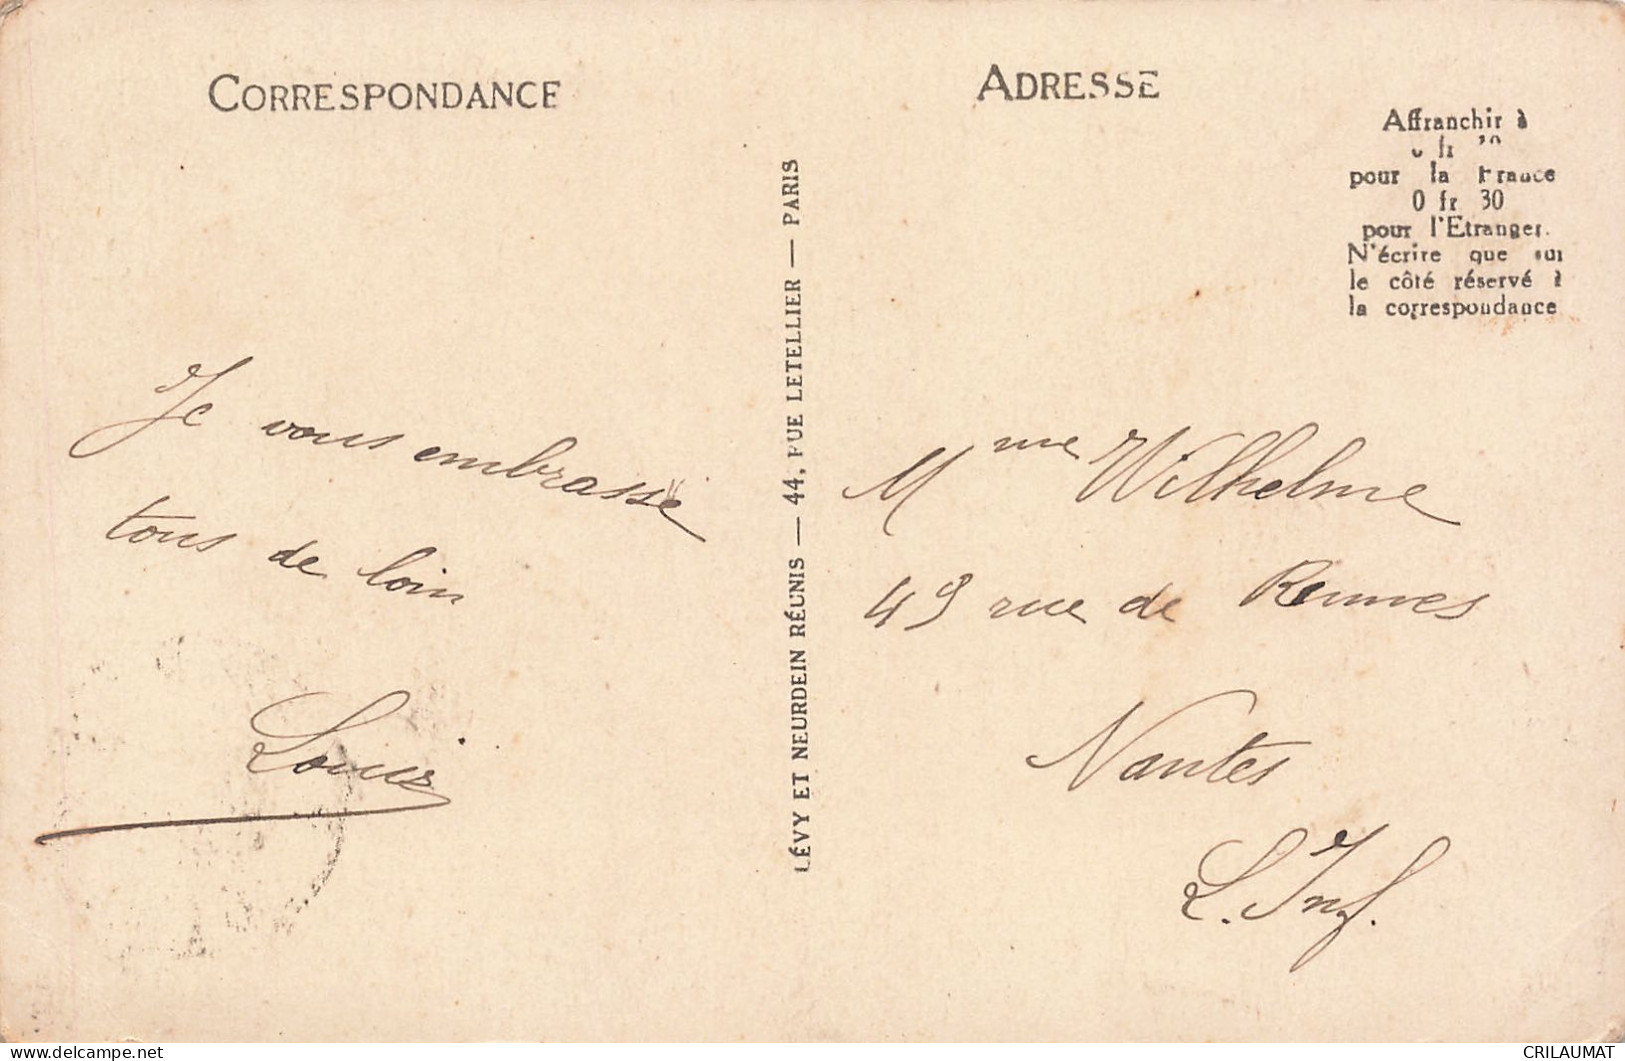 CORRESPONDANCE
Je vous embrasse
tous de loin
Louis
LÉVY ET NEURDEIN RÉUNIS — 44, RUE LETELLIER — PARIS
ADRESSE
Affranchir à
fr
pour la France
0 fr 30
pour l'Etranger.
N'écrire que sur
le côté réservé à
la correspondance
Mme Wilhelme
49 rue de Rennes
Nantes
L. Inf.
CRILAUMAT